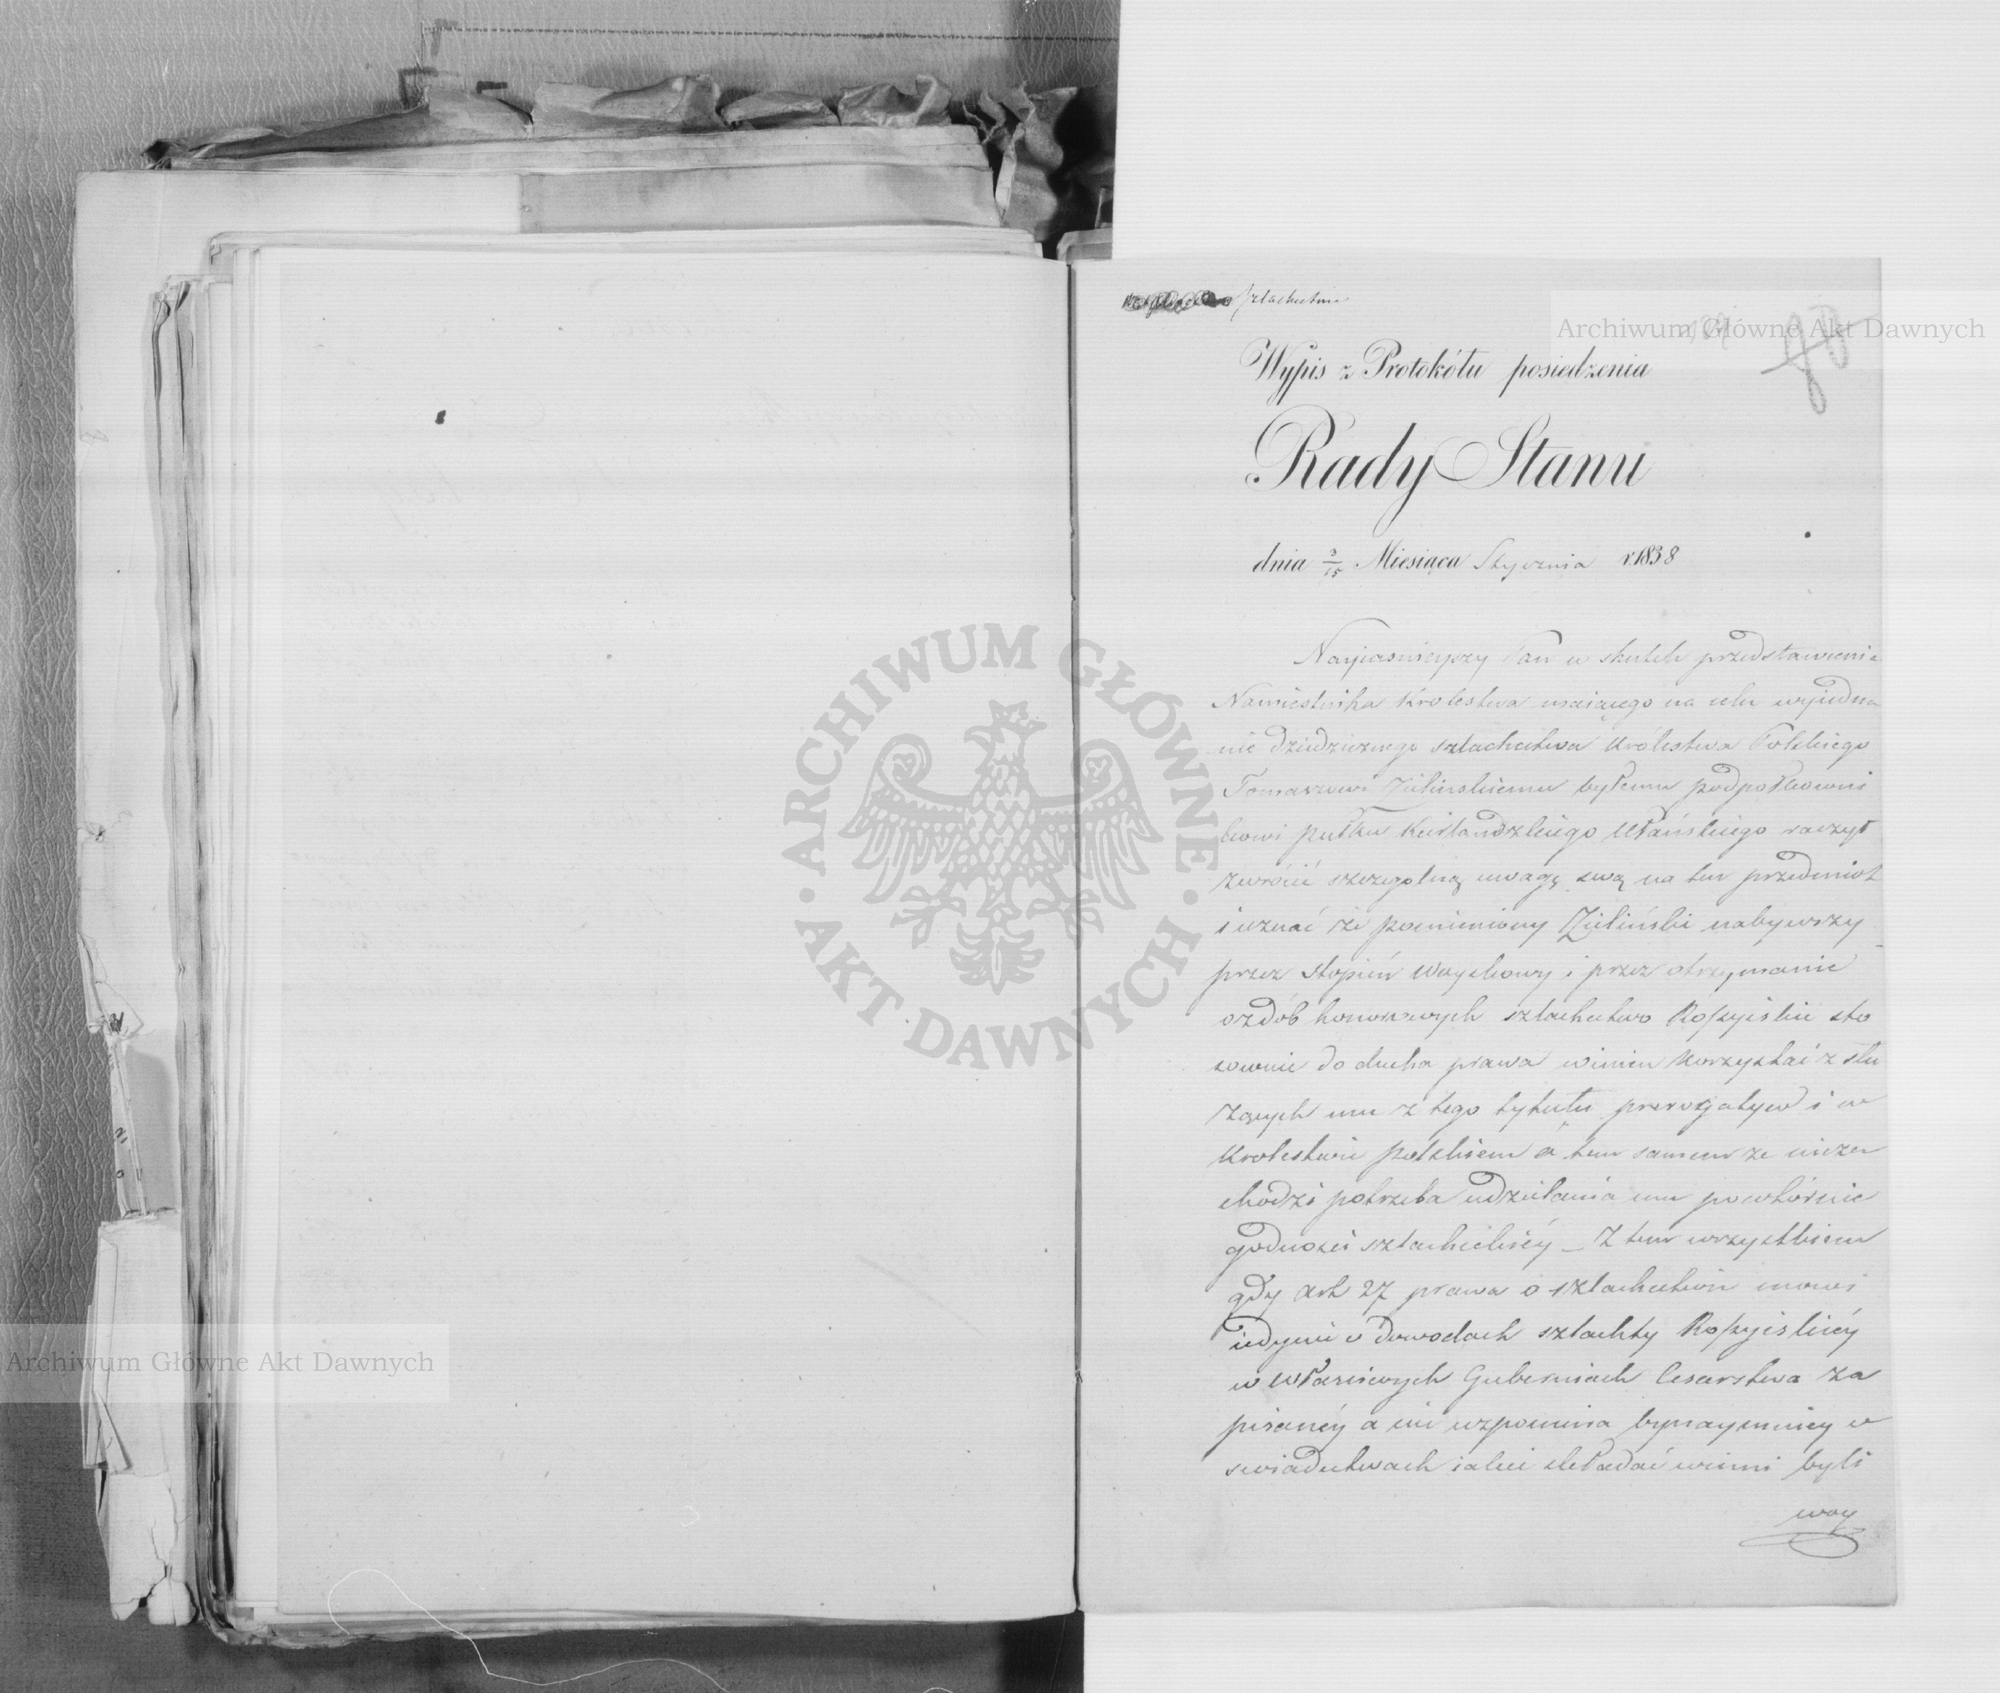 Szlachectwo
Archiwum Główne Akt Dawnych
Wypis z Protokółu posiedzenia
Rady Stanu
dnia 3/15 Miesiąca Stycznia r. 1838
Nayiasnieyszy Pan w skutek przedstawienia
Namiestnika Krolestwa maiącego na celu wyiedna
nie dziedzicznego szlachectwa Królestwa Polskiego
Tomaszowi Zielinskiemu byłemu podpołkowni
kowi pułku Kurlandzkiego Ułańskiego raczył
zwrócić szczegolną uwagę swą na ten przedmiot
i uznać że pomieniony Zieliński nabywszy
przez stopień woyskowy i przez otrzymanie
ozdób honorowych szlachectwo Rossyiskie sto
sownie do ducha prawa winien korzystać z słu
żących mu z tego tytułu prerogatyw i w
Krolestwie polskiem a tem samem że nieza
chodzi potrzeba udzielania mu powtórnie
godności szlacheckiéy – Z tem wszystkiem
gdy art 27 prawa o szlachectwie mowi
iedynie o dowodach szlachty Rossyiskiéy
w właściwych Guberniach Cesarstwa za
pisanéy a nie wspomina bynaymniey o
swiadectwach iakie składać winni byli
woy
ARCHIWUM GŁÓWNE
AKT DAWNYCH
Archiwum Główne Akt Dawnych